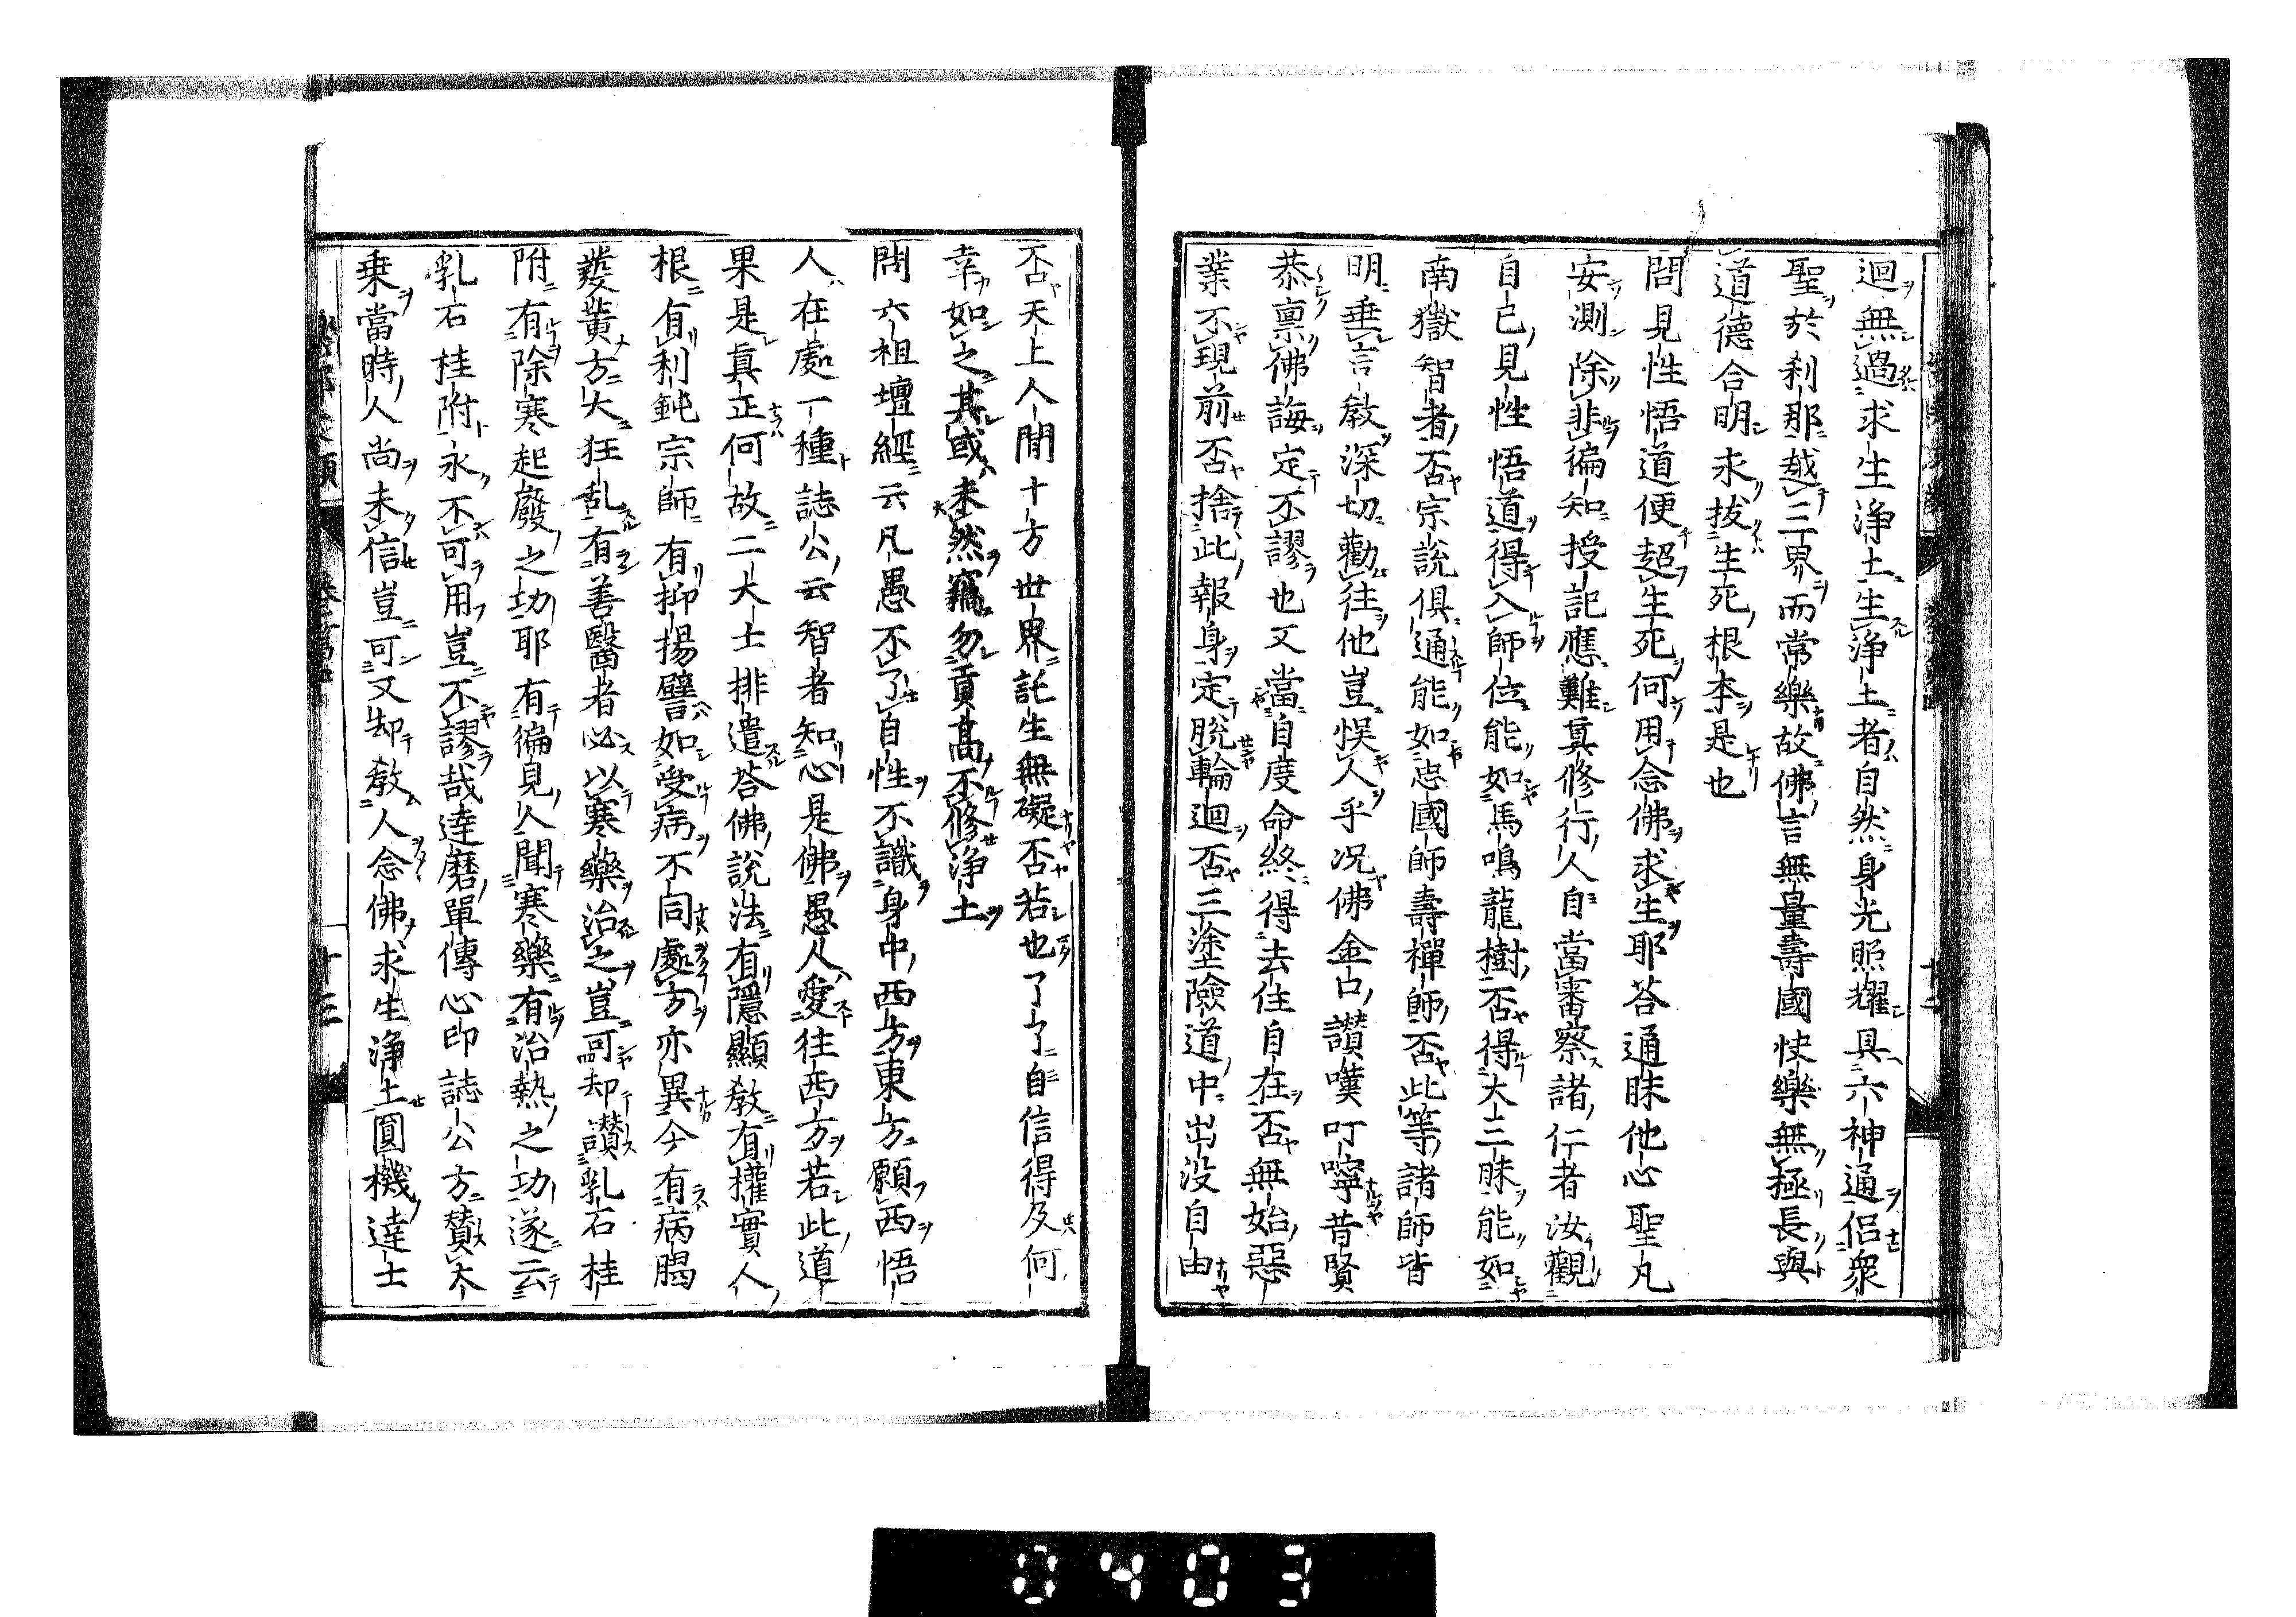 迴無過求生淨土生淨土者自然身光照耀具六神通侶衆
聖於刹那越三界而常樂故佛言無量壽國快樂無極長與
道德合明求拔生死根本是也
問見性悟道便超生死何用念佛求生耶荅通昧他心聖凡
安測除非徧知授記應難真修行人自當審察諸仁者汝觀
自已見性悟道得入師位能如馬鳴龍樹否得大三昧能如
南嶽智者否宗說俱通能如忠國師壽禪師否此等諸師皆
明垂言教深切勸往他豈悮人乎况佛金口讃嘆叮嚀昔賢
恭禀佛誨定不謬也又當自度命終得去住自在否無始惡
業不現前否捨此報身定脫輪迴否三塗險道中出没自由
否天上人間十方世界託生無礙否若也了了自信得及何
幸如之其或未然竊勿貢高不修淨土
問六祖壇經云凡愚不了自性不識身中西方東方願西悟
人在處一種誌公云智者知心是佛愚人愛往西方若此道
果是真正何故二大士排遣荅佛說法有隱顯教有權實人
根有利鈍宗師有抑揚譬如受病不同處方亦異今有病腸
發黃方大狂乱有善醫者必以寒藥治之豈可却讃乳石桂
附有除寒起廢之功耶有徧見人聞寒藥有治熱之功遂云
乳石桂附永不可用豈不謬哉達磨單傳心印誌公方賛大
乗當時人尚未信豈可又却教人念佛求生淨土圓機達士
十三
0403